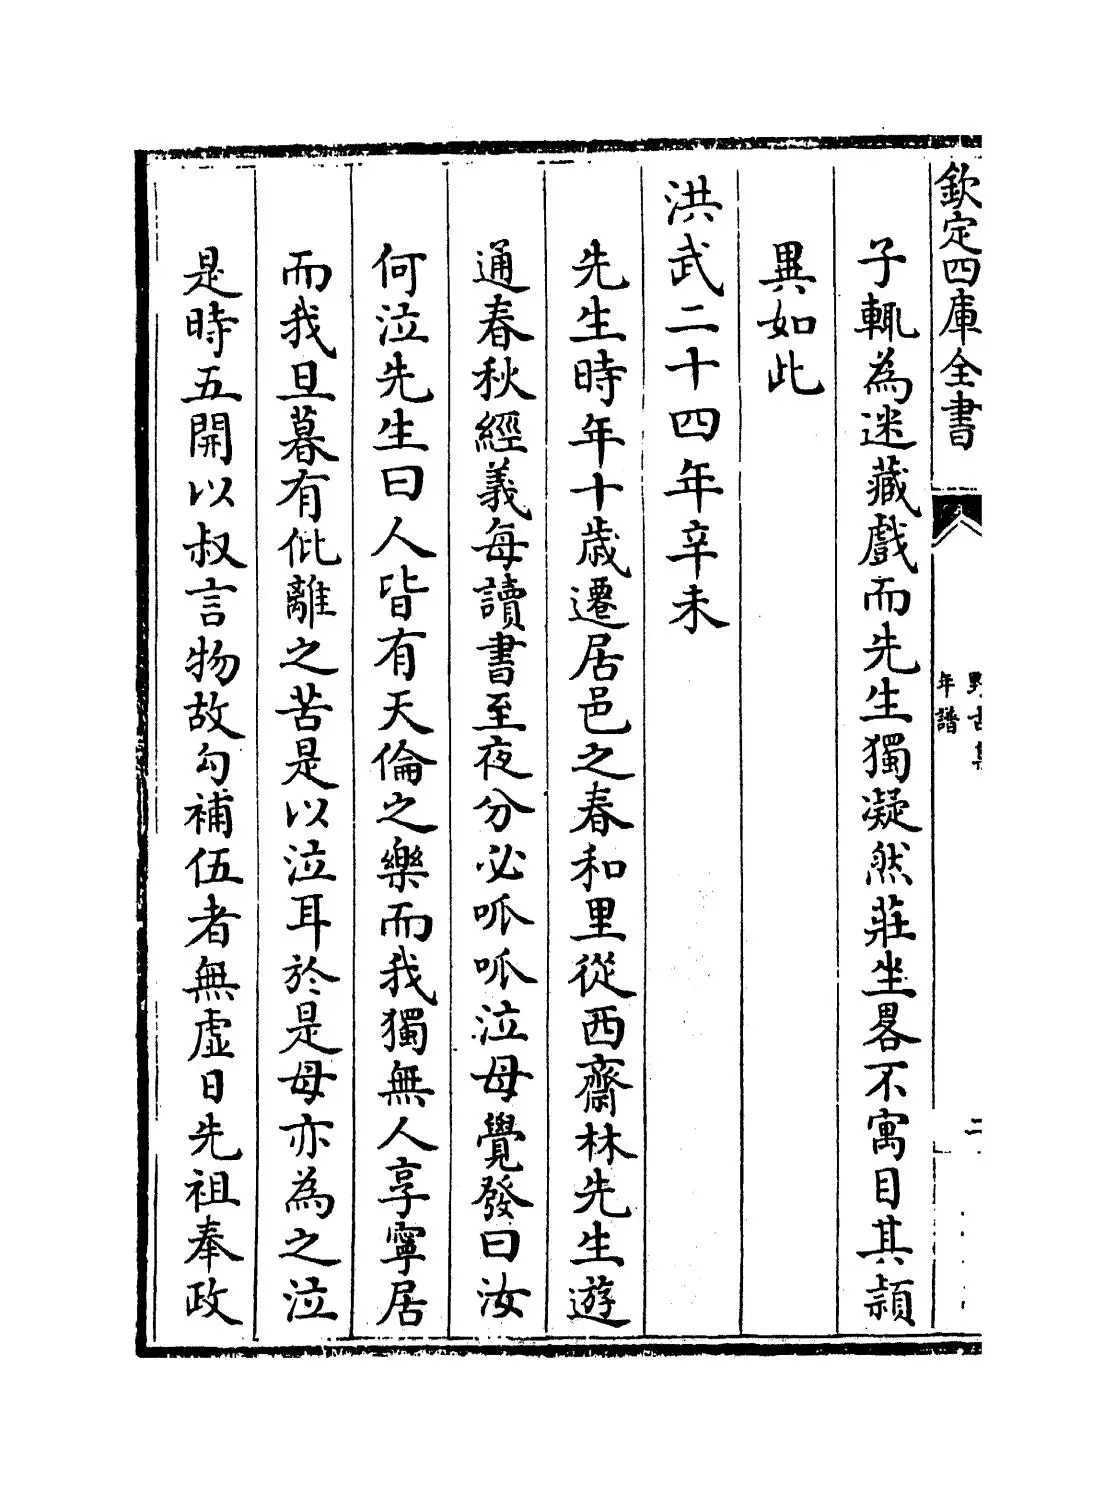 欽定四庫全書
年譜
二
子輒為迷藏戲而先生獨凝然莊坐畧不寓目其頴
異如此
洪武二十四年辛未
先生時年十歲遷居邑之春和里從西齋林先生遊
通春秋經義每讀書至夜分必呱呱泣母覺發曰汝
何泣先生曰人皆有天倫之樂而我獨無人享寧居
而我旦暮有仳離之苦是以泣耳於是母亦為之泣
是時五開以叔言物故勾補伍者無虚日先祖奉政